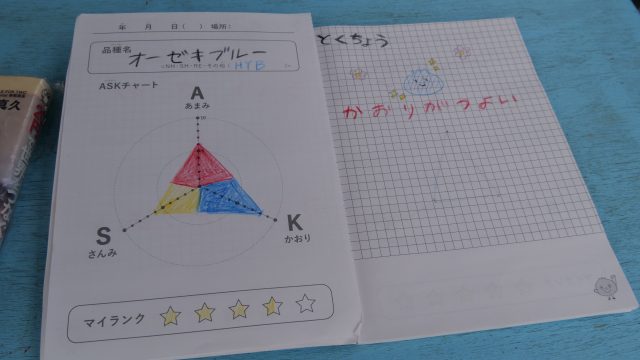 年 月 日( ) 場所:
品種名
オーゼキブルー
HTB
ASKチャート
A
あまみ
10
S
さんみ
K
かおり
マイランク
とくちょう
かおりがつよい
真久